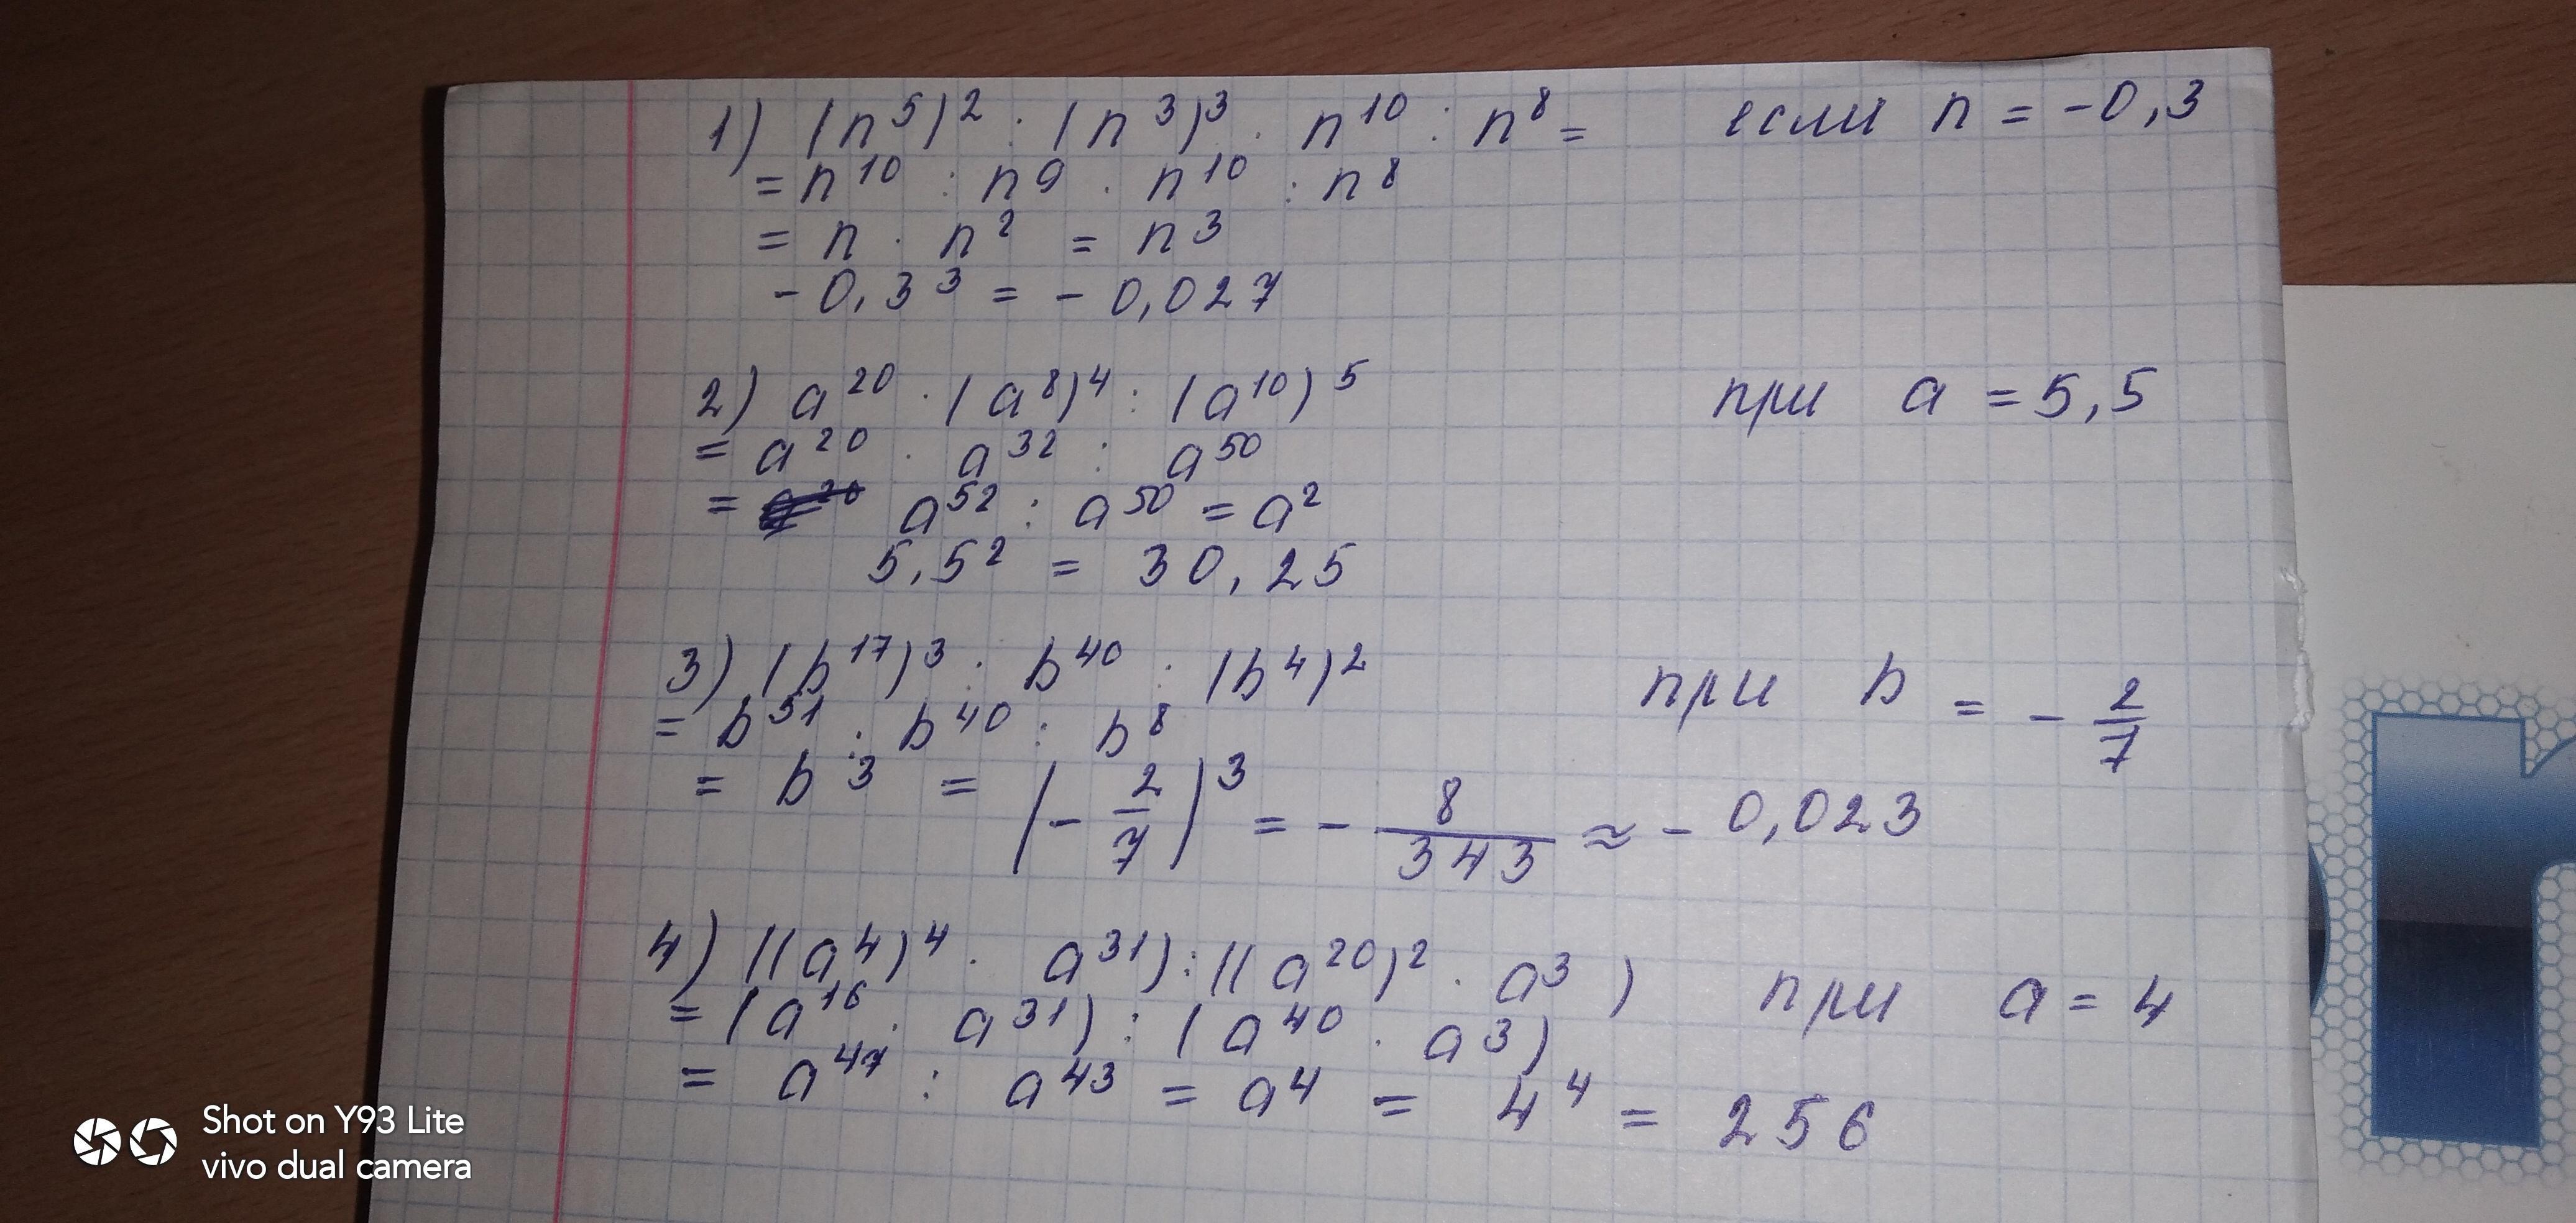 1) (n⁵)² : (n³)³ · n¹⁰ : n⁸ = если n = -0,3
= n¹⁰ : n⁹ · n¹⁰ : n⁸
= n · n² = n³
-0,3³ = -0,027
2) a²⁰ · (a⁸)⁴ : (a¹⁰)⁵ при a = 5,5
= a²⁰ · a³² : a⁵⁰
= a⁵² : a⁵⁰ = a²
5,5² = 30,25
3) (b¹⁷)³ : b⁴⁰ : (b⁴)² при b = - 2/7
= b⁵¹ : b⁴⁰ : b⁸
= b³ = (- 2/7)³ = - 8/343 ≈ - 0,023
4) ((a⁴)⁴ · a³¹) : ((a²⁰)² · a³) при a = 4
= (a¹⁶ · a³¹) : (a⁴⁰ · a³)
= a⁴⁷ : a⁴³ = a⁴ = 4⁴ = 256
Shot on Y93 Lite
vivo dual camera